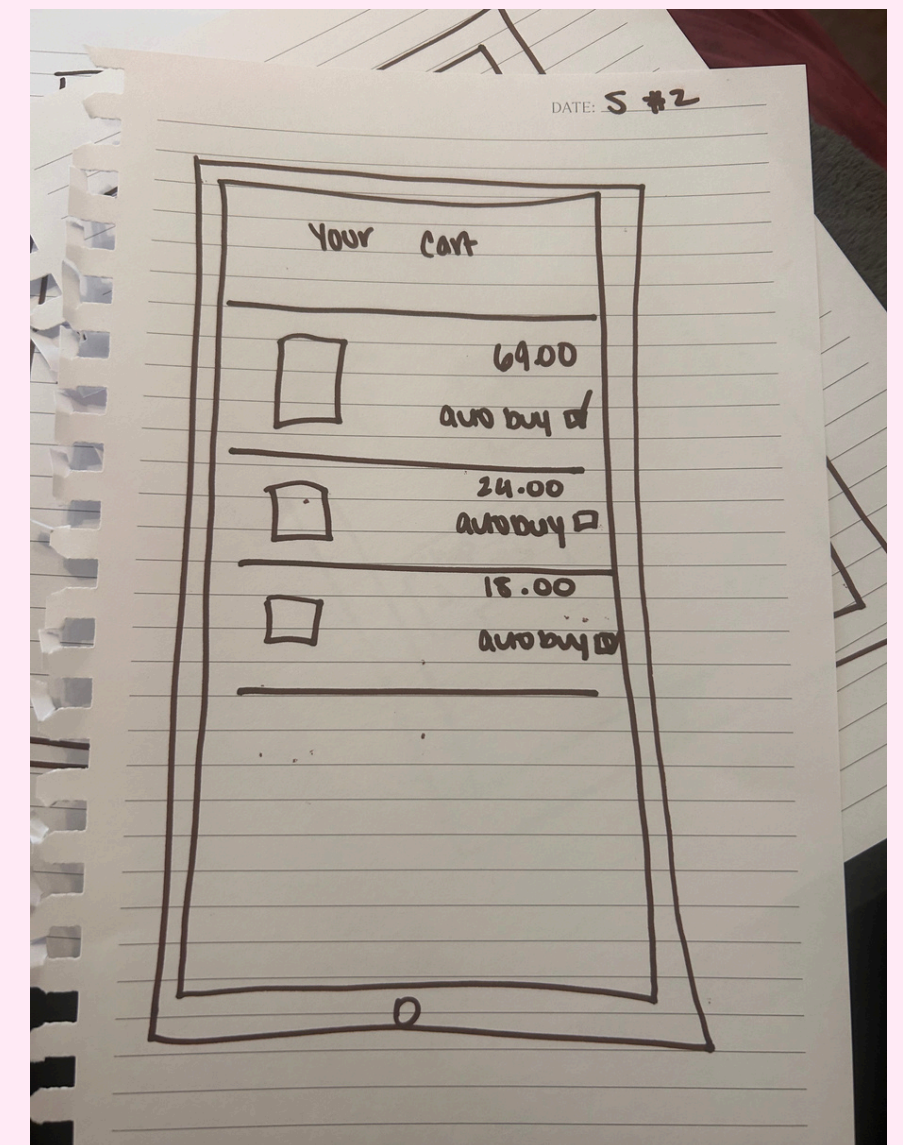 DATE: S #2
Your Cart
69.00
auto buy
24.00
autobuy
18.00
autobuy